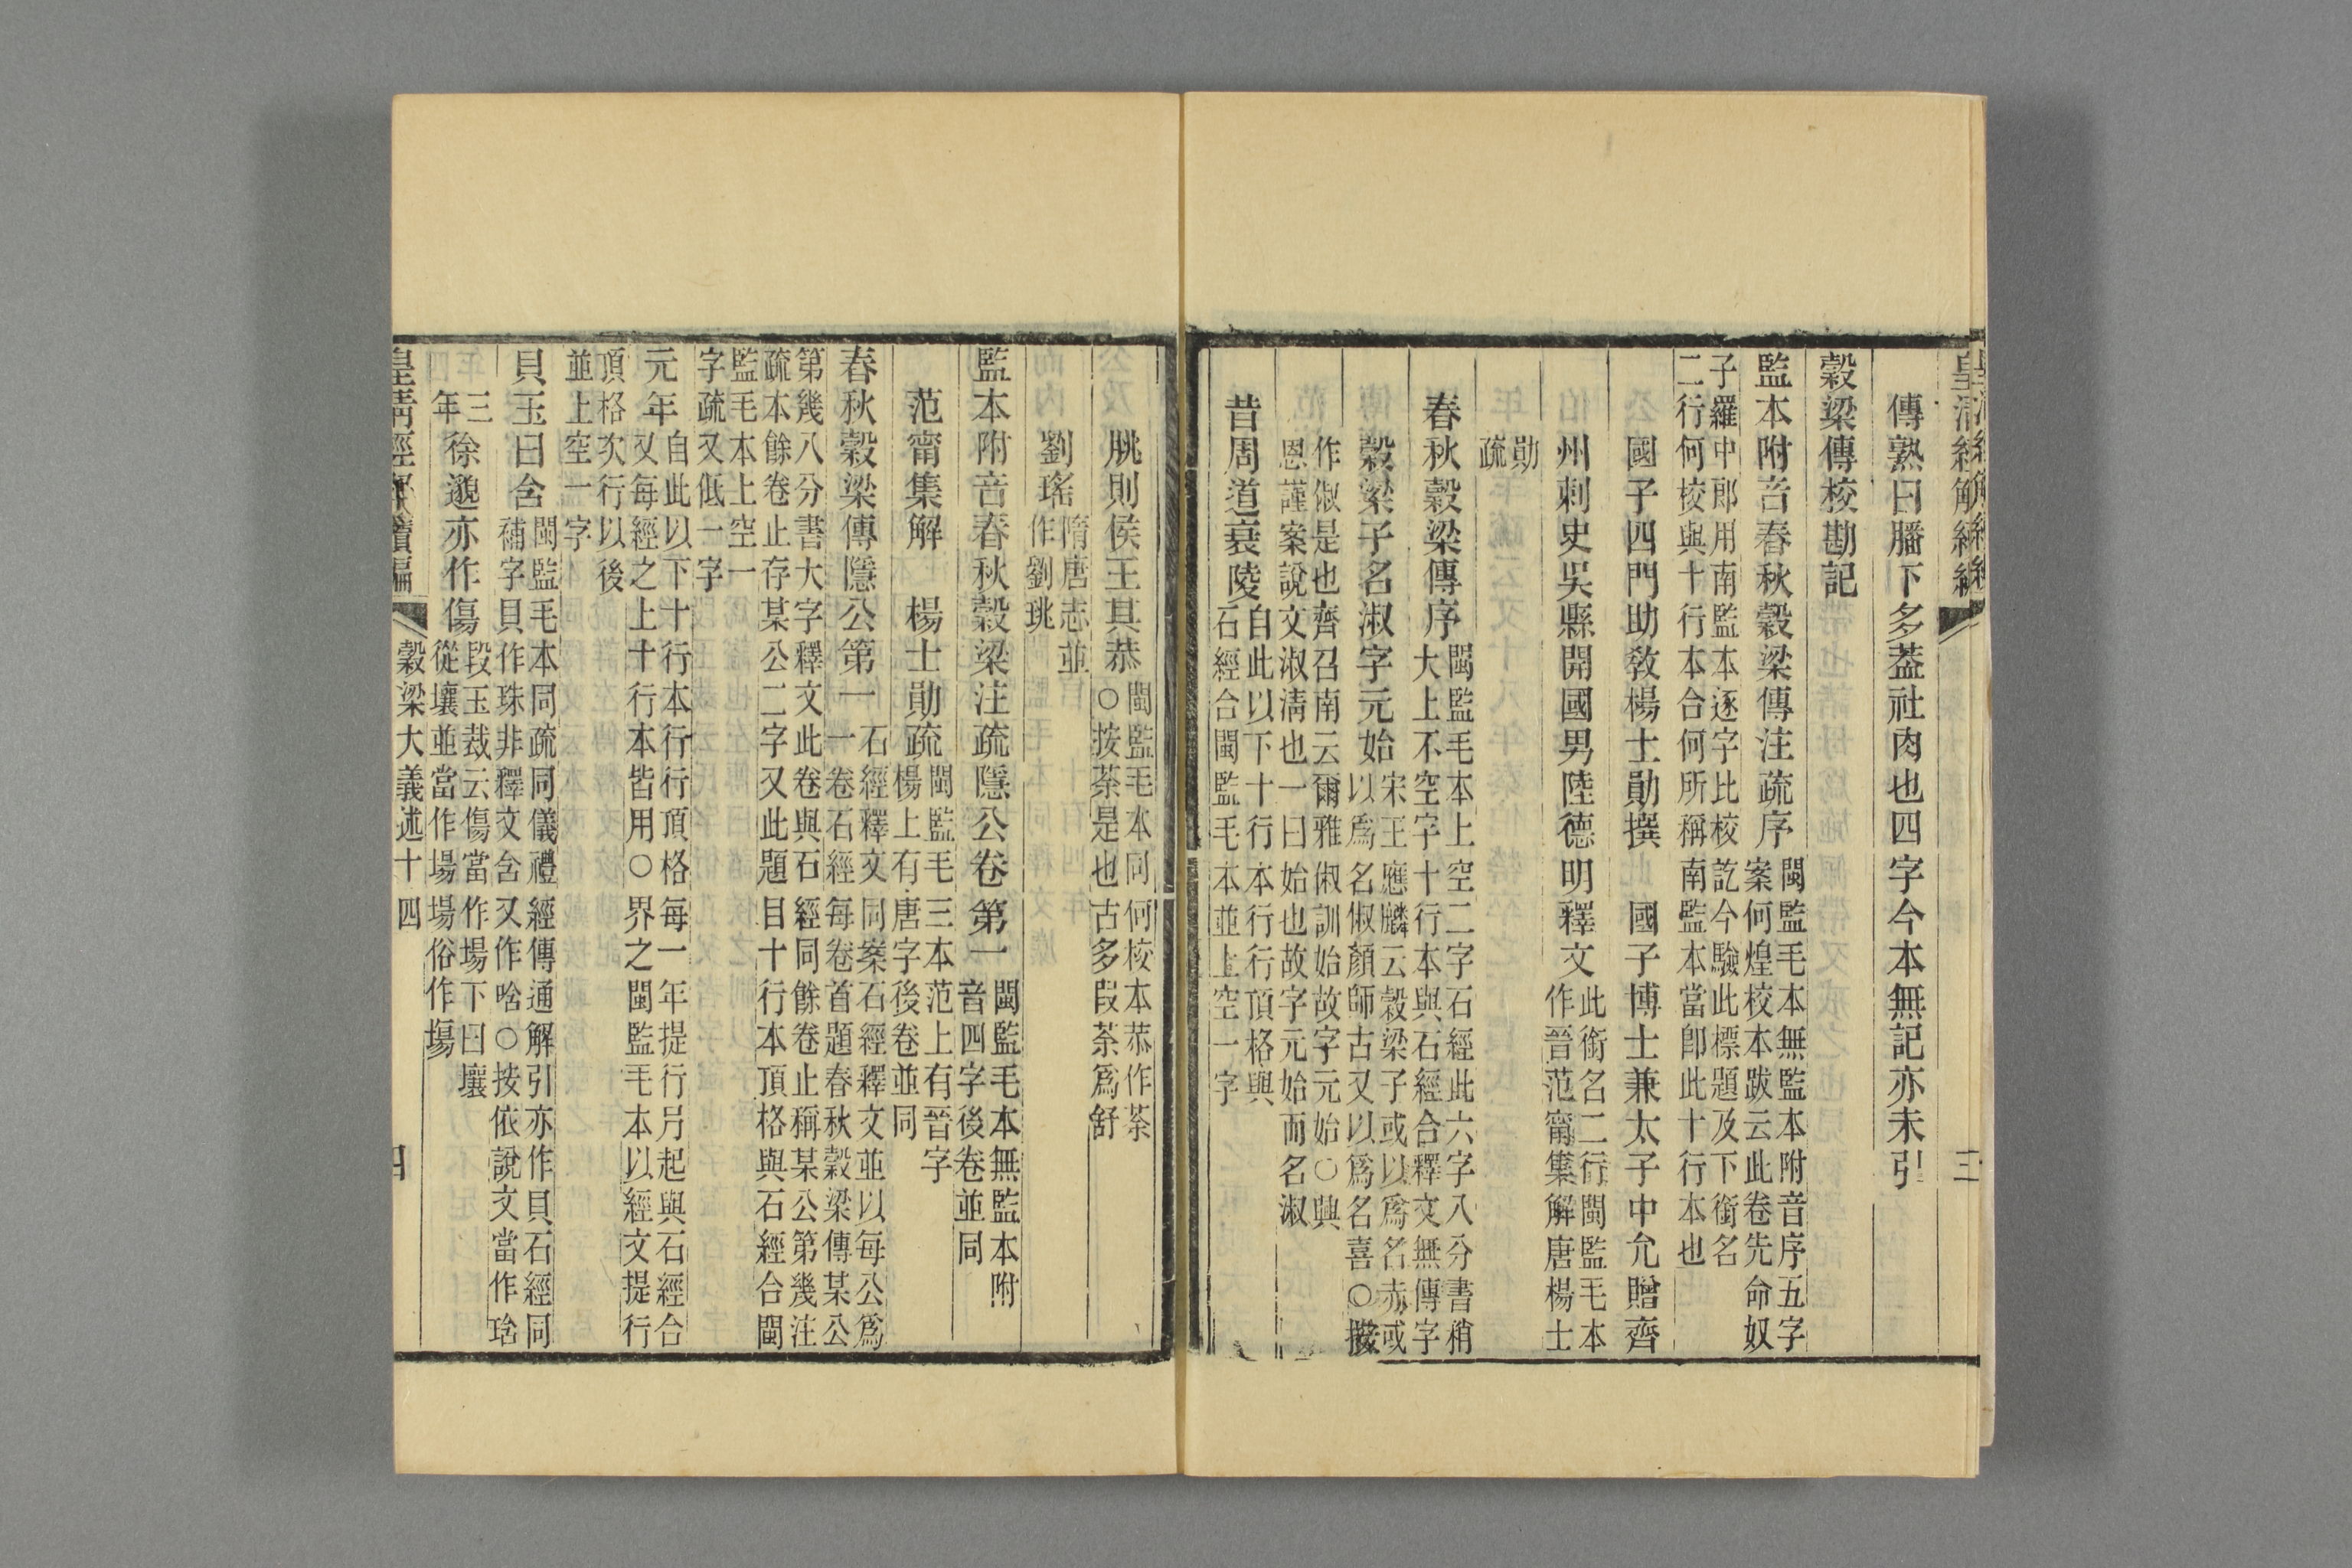 皇清經解續編
三
傳熟曰膰下多葢社肉也四字今本無記亦未引
穀梁傳校勘記
監本附音春秋穀梁傳注疏序
閩監毛本無監本附音序五字
案何煌校本跋云此卷先命奴
子羅中郎用南監本逐字比校訖今驗此標題及下銜名
二行何校與十行本合何所稱南監本當卽此十行本也
國子四門助敎楊士勛撰 國子博士兼太子中允贈齊
州刺史吳縣開國男陸德明釋文
此銜名二行閩監毛本
作晉范甯集解唐楊士
勛
疏
春秋穀梁傳序
閩監毛本上空二字石經此六字八分書稍
大上不空字十行本與石經合釋文無傳字
穀梁子名淑字元始
宋王應麟云穀梁子或以爲名赤或
以爲名俶顏師古又以爲名喜○按
作俶是也齊召南云爾雅俶訓始故字元始○興
恩謹案說文淑淸也一曰始也故字元始而名淑
昔周道衰陵
自此以下十行本行行頂格與
石經合閩監毛本並上空一字
脁則侯王其恭
閩監毛本同何校本恭作荼
○按荼是也古多叚荼爲舒
劉瑤
隋唐志並
作劉珧
監本附音春秋穀梁注疏隱公卷第一
閩監毛本無監本附
音四字後卷並同
范甯集解 楊士勛疏
閩監毛三本范上有晉字
楊上有唐字後卷並同
春秋穀梁傳隱公第一
石經釋文同案石經釋文並以每公爲
一卷石經每卷首題春秋穀梁傳某公
第幾八分書大字釋文此卷與石經同餘卷止稱某公第幾注
疏本餘卷止存某公二字又此題目十行本頂格與石經合閩
監毛本上空一
字疏又低一字
元年
自此以下十行本行行頂格每一年提行另起與石經合
又每經之上十行本皆用○界之閩監毛本以經文提行
頂格次行以後
並上空一字
貝玉曰含
閩監毛本同疏同儀禮經傳通解引亦作貝石經同
補字貝作珠非釋文含又作唅○按依說文當作琀
三
年
徐邈亦作傷
段玉裁云傷當作場下曰壤
從壤並當作場場俗作塲
皇清經解續編
穀梁大義述十四
四